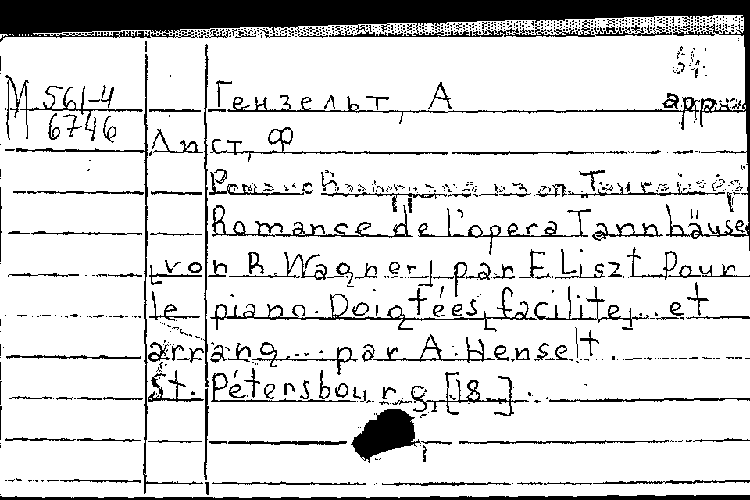 54.
М 561-4 Гензельт, А аранж
6746
Лист, Ф
Романс Вольфрама из оп. Тангейзер
Romance de l'opera Tannhäuse
[von R. Wagner] par F. Liszt Pour
le piano. Doigtées, [facilite] .. et
arrang.... par A. Henselt.
St. Pétersbourg, [18 ].